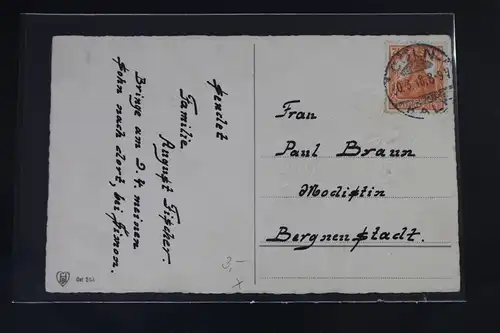 sendet
Familie
August Fischer.
Bringe am 2.4. meinen
Sohn nach dort, bei Simon.
Frau
Paul Braun
Modistin
Bergneustadt.
3,-
x